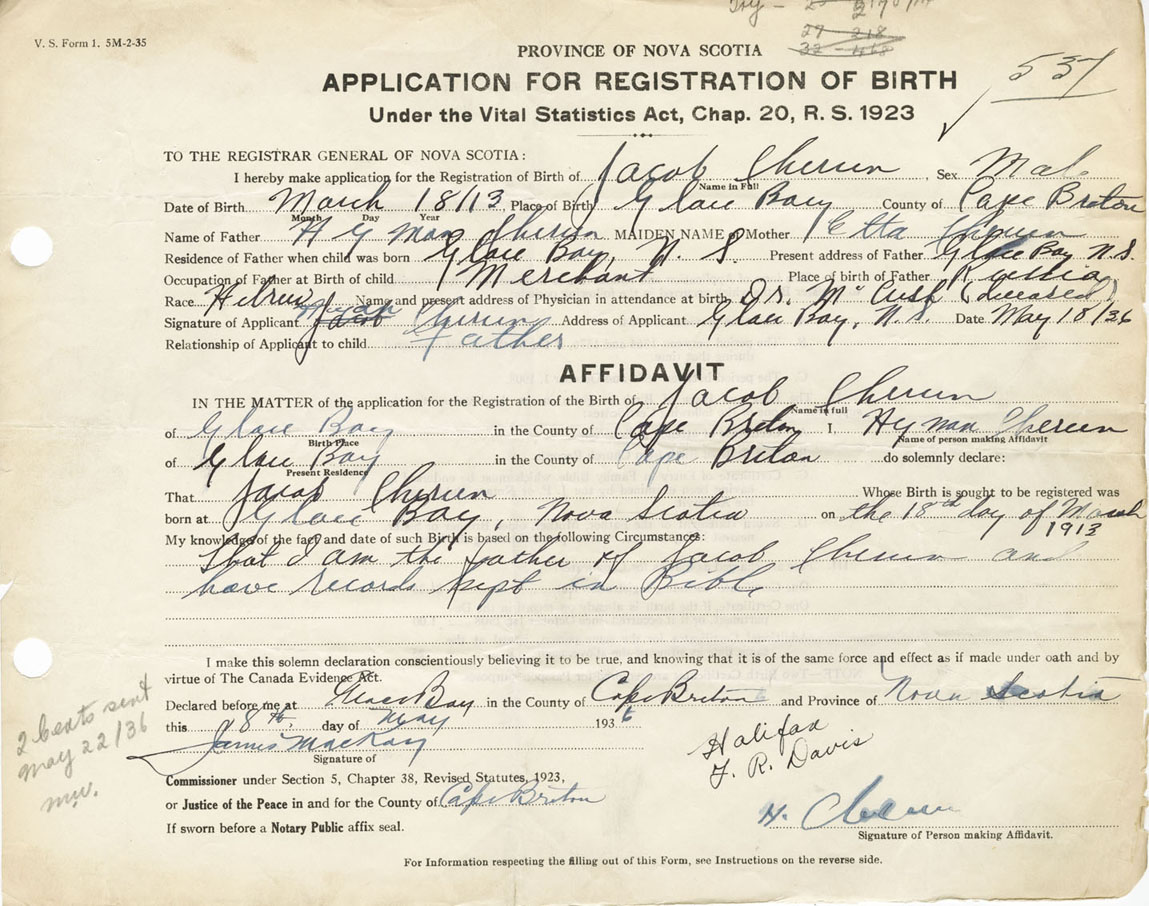 V. S. Form 1. 5M-2-35
27 - 218
33 - 468
537
PROVINCE OF NOVA SCOTIA
APPLICATION FOR REGISTRATION OF BIRTH
Under the Vital Statistics Act, Chap. 20, R. S. 1923
TO THE REGISTRAR GENERAL OF NOVA SCOTIA:
I hereby make application for the Registration of Birth of Jacob Cherun Sex Male
Name in Full
Date of Birth March 18/13 Place of Birth Glace Bay County of Cape Breton
Month Day Year
Name of Father Hyman Cherun MAIDEN NAME of Mother Etta
Residence of Father when child was born Glace Bay, N. S. Present address of Father Glace Bay N.S.
Occupation of Father at Birth of child Merchant Place of birth of Father Russia
Race Hebrew Name and present address of Physician in attendance at birth Dr. McCush (deceased)
Signature of Applicant Jacob Hyman Cherun Address of Applicant Glace Bay, N.S Date May 18/36
Relationship of Applicant to child Father
AFFIDAVIT
IN THE MATTER of the application for the Registration of the Birth of Jacob Cherun
Name in full
of Glace Bay in the County of Cape Breton I, Hyman Cherun
Birth Place Name of person making Affidavit
of Glace Bay in the County of Cape Breton do solemnly declare:
Present Residence
That Jacob Cherun Whose Birth is sought to be registered was
born at Glace Bay, Nova Scotia on the 18th day of March
1913
My knowledge of the fact and date of such Birth is based on the following Circumstances:
That I am the father of Jacob Cherun and
have records kept in Bible
I make this solemn declaration conscientiously believing it to be true, and knowing that it is of the same force and effect as if made under oath and by
virtue of The Canada Evidence Act.
Declared before me at Glace Bay in the County of Cape Breton and Province of Nova Scotia
this 18th. day of May 1936
James MacKay
Signature of
Halifax
F. R. Davis
2 Certs sent
May 22/36
mw.
Commissioner under Section 5, Chapter 38, Revised Statutes, 1923,
or Justice of the Peace in and for the County of Cape Breton
If sworn before a Notary Public affix seal.
H. Cherun
Signature of Person making Affidavit.
For Information respecting the filling out of this Form, see Instructions on the reverse side.